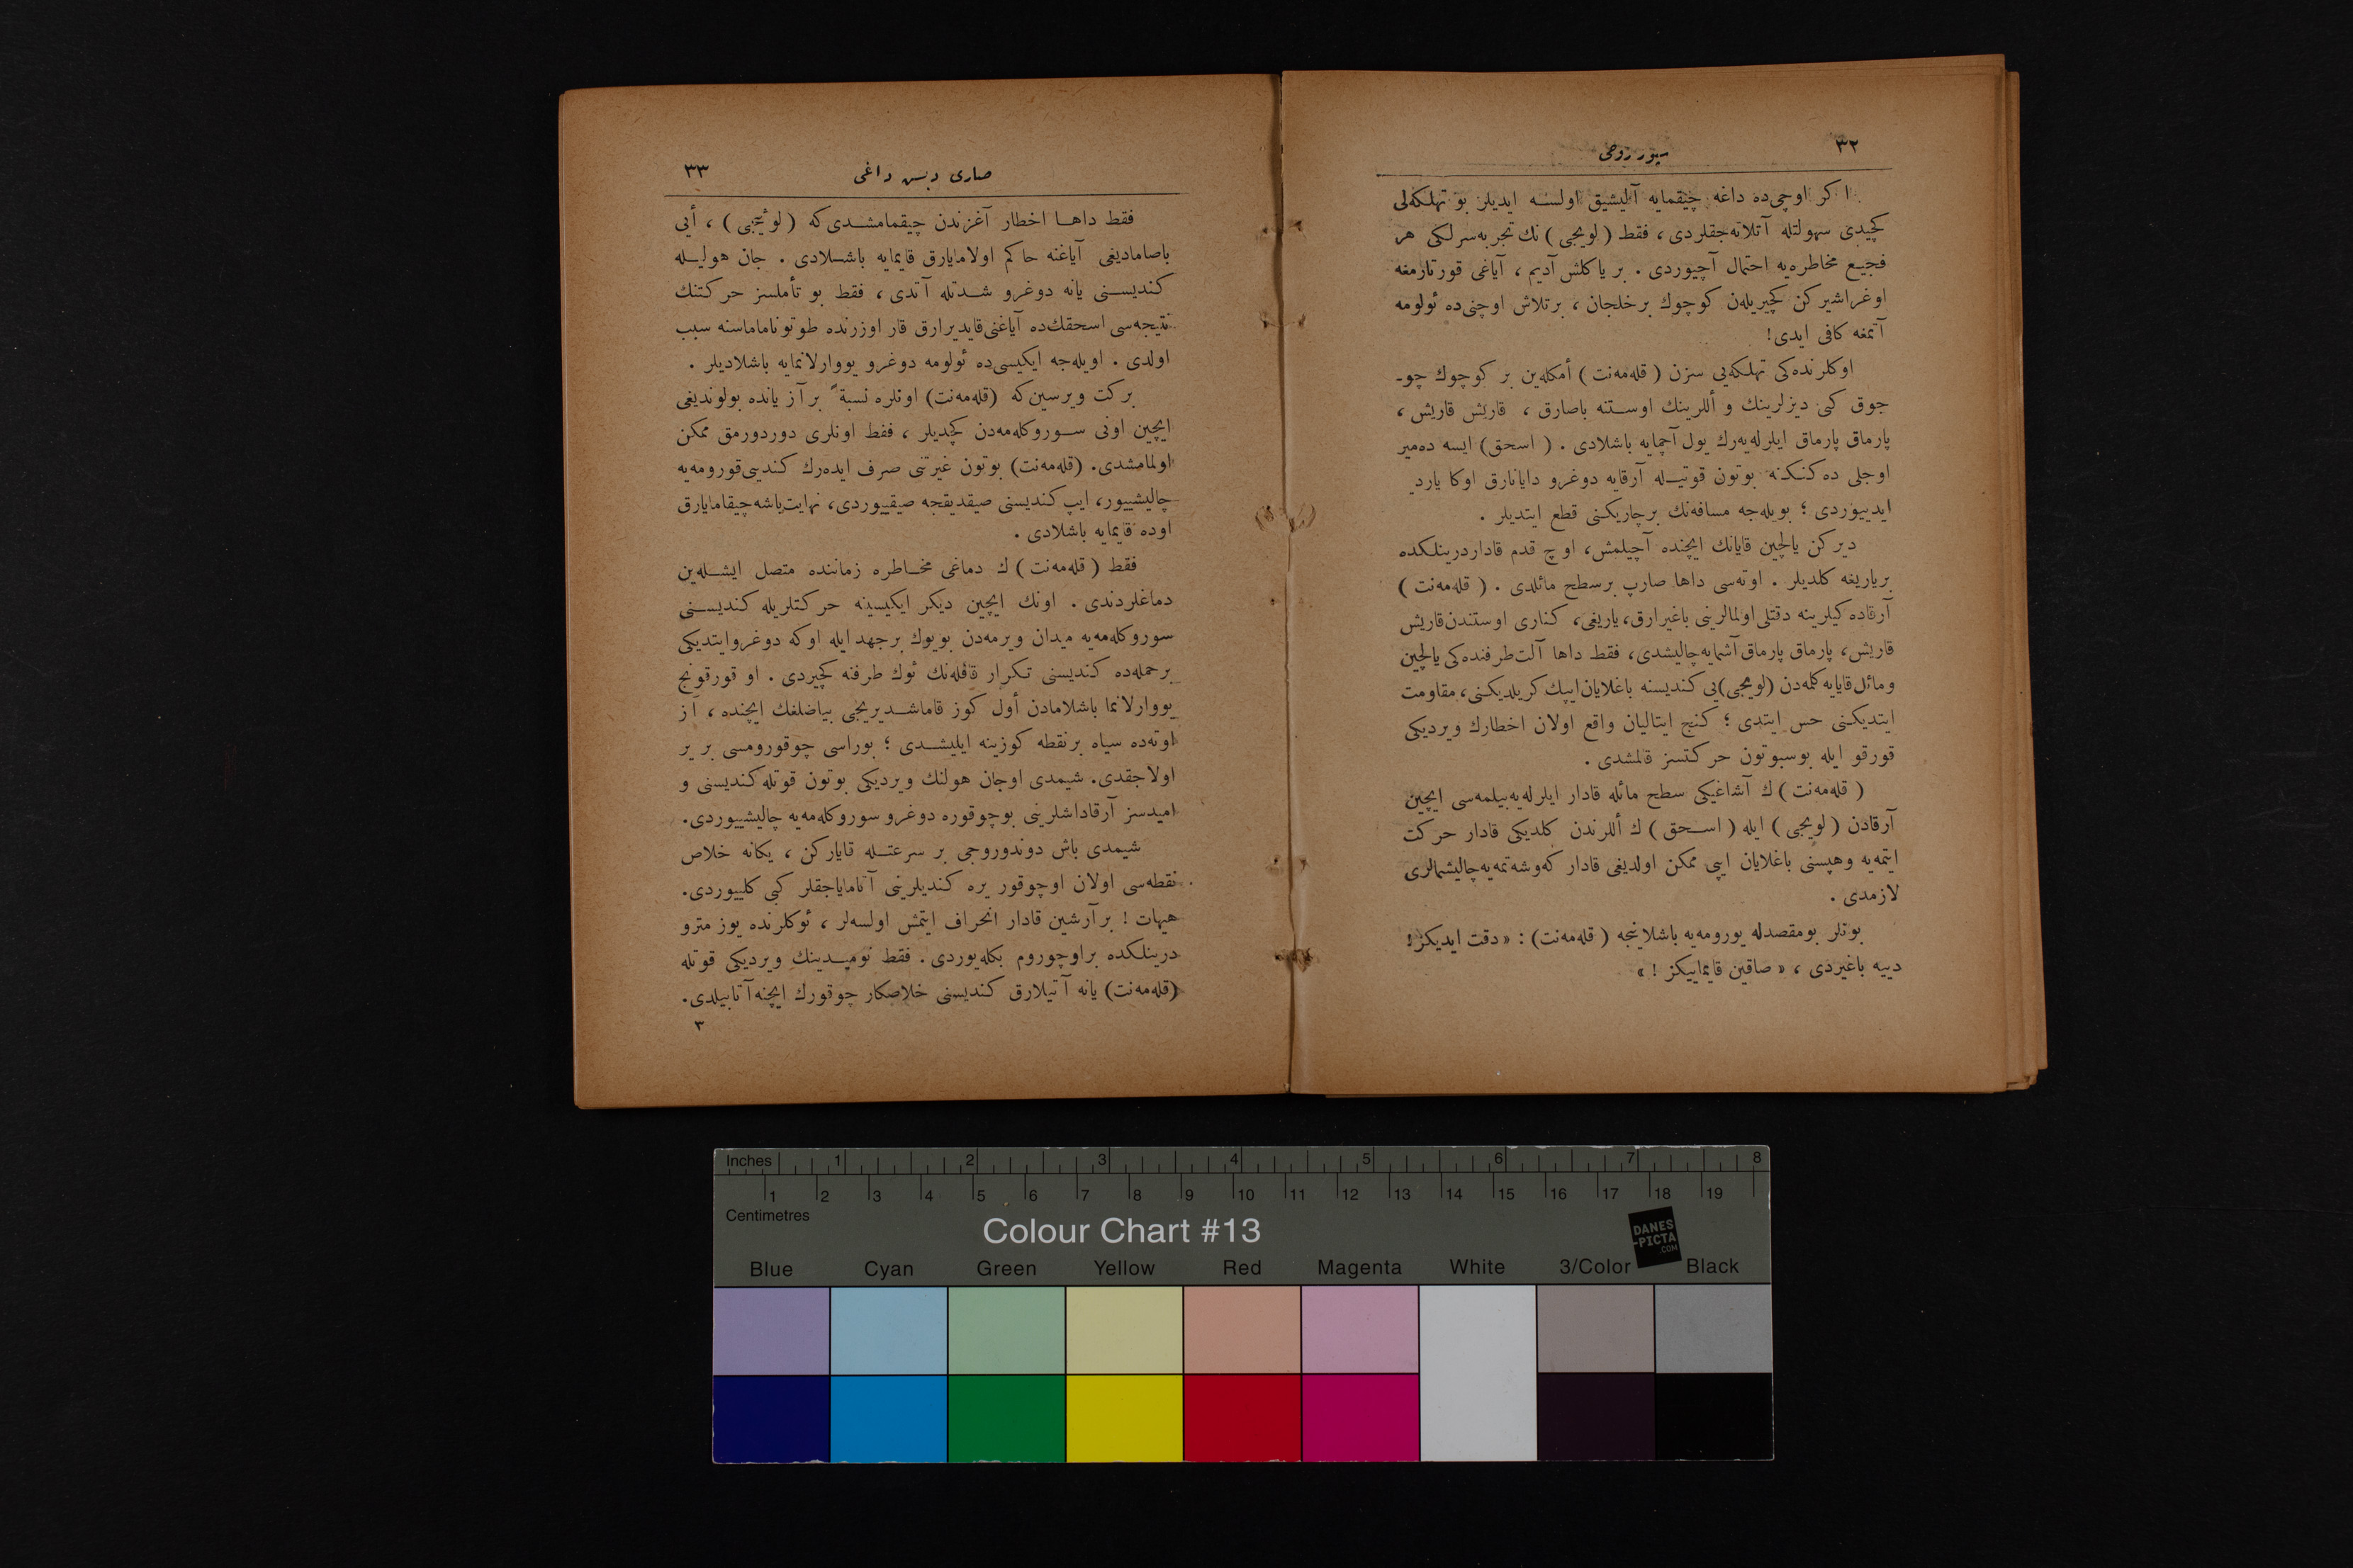 ٣٢
سپور روحی
اكر اوچی‌ده داغه چیقمایه آلیشیق اولسه ایدیلر بو تهلكه‌لی
كچیدی سهولتله آتلاته‌جقلردی ، فقط ( لویجی ) نك تجربه‌سزلكی هر
فجیع مخاطره‌یه احتمال آچیوردی . بر یاكلش آدیم ، آیاغی قورتارمغه
اوغراشیركن كچیریله‌ن كوچوك برخلجان ، برتلاش اوچنی‌ده ئولومه
آتمغه كافی ایدی !
اوكلرنده‌كی تهلكه‌یی سزن ( قله‌مه‌نت ) أمكله‌ین بر كوچوك چو-
جوق كبی دیزلرینك و أللرینك اوستنه باصارق ، قاریش قاریش ،
پارماق پارماق ایلرله‌یه‌رك یول آچمایه باشلادی . ( اسحق ) ایسه ده‌میر
اوجلی ده‌كنكنه بوتون قوتیله آرقایه دوغرو دایانارق اوكا یارد
ایدییوردی ؛ بویله‌جه مسافه‌نك برچاریكنی قطع ایتدیلر .
دیركن یالچین قایانك ایچنده آچیلمش ، اوچ قدم قادار درینلكده
بریاریغه كلدیلر . اوته‌سی داها صارپ برسطح مائلدی . ( قله‌مه‌نت )
آرقاده‌كیلرینه دقتلی اولمالرینی باغیرارق ، یاریغی ، كناری اوستندن قاریش
قاریش ، پارماق پارماق آشمایه چالیشدی ، فقط داها آلت طرفنده‌كی یالچین
ومائل قایایه كلمه‌دن (لویجی)یی كندیسنه باغلایان ایپك كریلدیكنی ، مقاومت
ایتدیكنی حس ایتدی ؛ كنج ایتالیان واقع اولان اخطارك ویردیكی
قورقو ایله بوسبوتون حركتسز قالمشدی .
( قله‌مه‌نت ) ك آشاغیكی سطح مائله قادار ایلرله‌یه‌بیلمه‌سی ایچین
آرقادن ( لویجی ) ایله ( اسحق ) ك أللرندن كلدیكی قادار حركت
ایتمه‌یه وهپسنی باغلایان ایپی ممكن اولدیغی قادار كه‌وشه‌تمه‌یه چالیشمالری
لازمدی .
بونلر بومقصدله یورومه‌یه باشلاینجه ( قله‌مه‌نت ) : « دقت ایدیكز !
دییه باغیردی ، « صاقین قایماییكز ! »
صاری دبس داغی
٣٣
فقط داها اخطار آغزندن چیقمامشدی‌كه ( لوئیجی ) ، أیی
باصامادیغی آیاغنه حاكم اولامایارق قایمایه باشلادی . جان هولیله
كندیسنی یانه دوغرو شدتله آتدی ، فقط بو تأملسز حركتنك
نتیجه‌سی اسحقك‌ده آیاغنی قایدیرارق قار اوزرنده طوتوناماماسنه سبب
اولدی . اویله‌جه ایكیسی‌ده ئولومه دوغرو یووارلانمایه باشلادیلر .
بركت ویرسین‌كه (قله‌مه‌نت) اونلره نسبةً بر آز یانده بولوندیغی
ایچین اونی سوروكله‌مه‌دن كچدیلر ، فقط اونلری دوردورمق ممكن
اولمامشدی . (قله‌مه‌نت) بوتون غیرتنی صرف ایده‌رك كندیی قورومه‌یه
چالیشییور ، ایپ كندیسنی صیقدیقجه صیقییوردی ، نهایت باشه چیقامایارق
اوده قایمایه باشلادی .
فقط ( قله‌مه‌نت ) ك دماغی مخاطره زماننده متصل ایشله‌ین
دماغلردندی . اونك ایچین دیكر ایكیسینه حركتلریله كندیسنی
سوروكله‌مه‌یه میدان ویرمه‌دن بویوك برجهد ایله اوكه دوغرو ایتدیكی
برحمله‌ده كندیسنی تكرار قافله‌نك ئوك طرفنه كچیردی . او قورقونج
یووارلانما باشلامادن أول كوز قاماشدیریجی بیاضلغك ایچنده ، آز
اوته‌ده سیاه برنقطه كوزینه ایلیشدی ؛ بوراسی چوقورومسی بر یر
اولاجقدی . شیمدی اوجان هولنك ویردیكی بوتون قوتله كندیسنی و
امیدسز آرقاداشلرینی بوچوقوره دوغرو سوروكله‌مه‌یه چالیشییوردی .
شیمدی باش دوندوروجی بر سرعتله قایاركن ، یكانه خلاص
نقطه‌سی اولان اوچوقور یره كندیلرینی آتامایاجقلر كبی كلییوردی .
هیهات ! برآرشین قادار انحراف ایتمش اولسه‌لر ، ئوكلرنده یوز مترو
درینلكده براوچوروم بكله‌یوردی . فقط نومیدینك ویردیكی قوتله
(قله‌مه‌نت) یانه آتیلارق كندیسنی خلاصكار چوقورك ایچنه آتابیلدی .
٣
Inches 1 2 3 4 5 6 7 8
1 2 3 4 5 6 7 8 9 10 11 12 13 14 15 16 17 18 19
Centimetres
Colour Chart #13
DANES
-PICTA
.COM
Blue Cyan Green Yellow Red Magenta White 3/Color Black